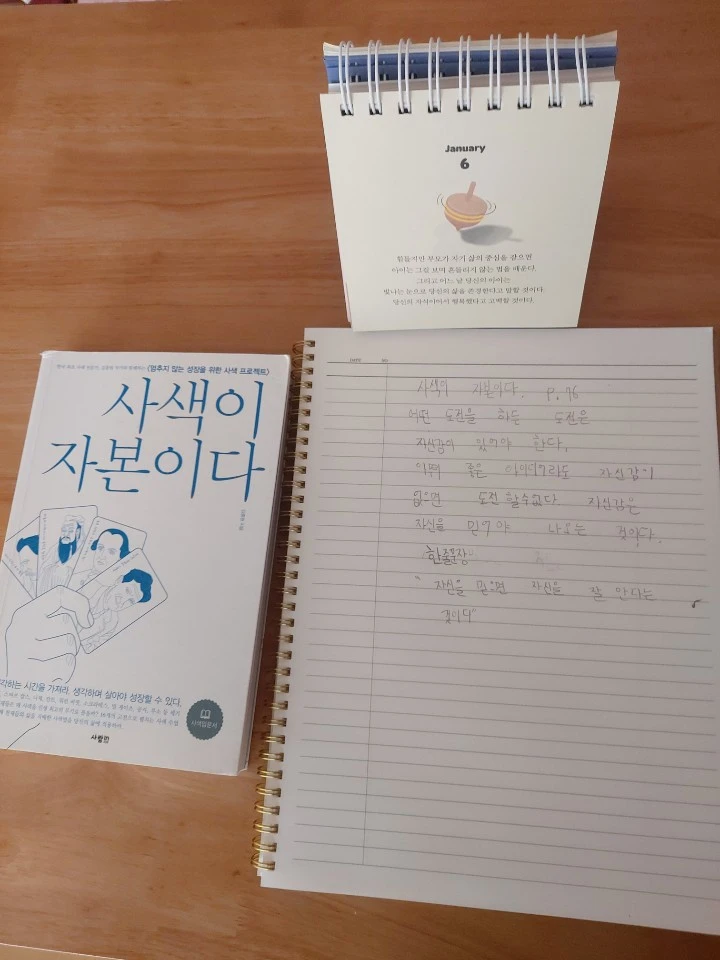 January
6
힘들지만 부모가 자기 삶의 중심을 잡으면
아이는 그걸 보며 흔들리지 않는 법을 배운다.
그리고 어느 날 당신의 아이는
빛나는 눈으로 당신의 삶을 존경한다고 말할 것이다.
당신의 자식이어서 행복했다고 고백할 것이다.
<멈추지 않는 성장을 위한 사색 프로젝트>
사색이
자본이다
각하는 시간을 가져라. 생각하며 살아야 성장할 수 있다.
사색입문서
사람in
DATE NO
사색이 자본이다. P. 76
어떤 도전을 하든 도전은
자신감이 있어야 한다.
아무리 좋은 아이디어라도 자신감이
없으면 도전 할수없다 자신감은
자신을 믿어야 나오는 것이다.
한줄문장
" 자신을 믿으면 자신을 잘 안다는
것이다"